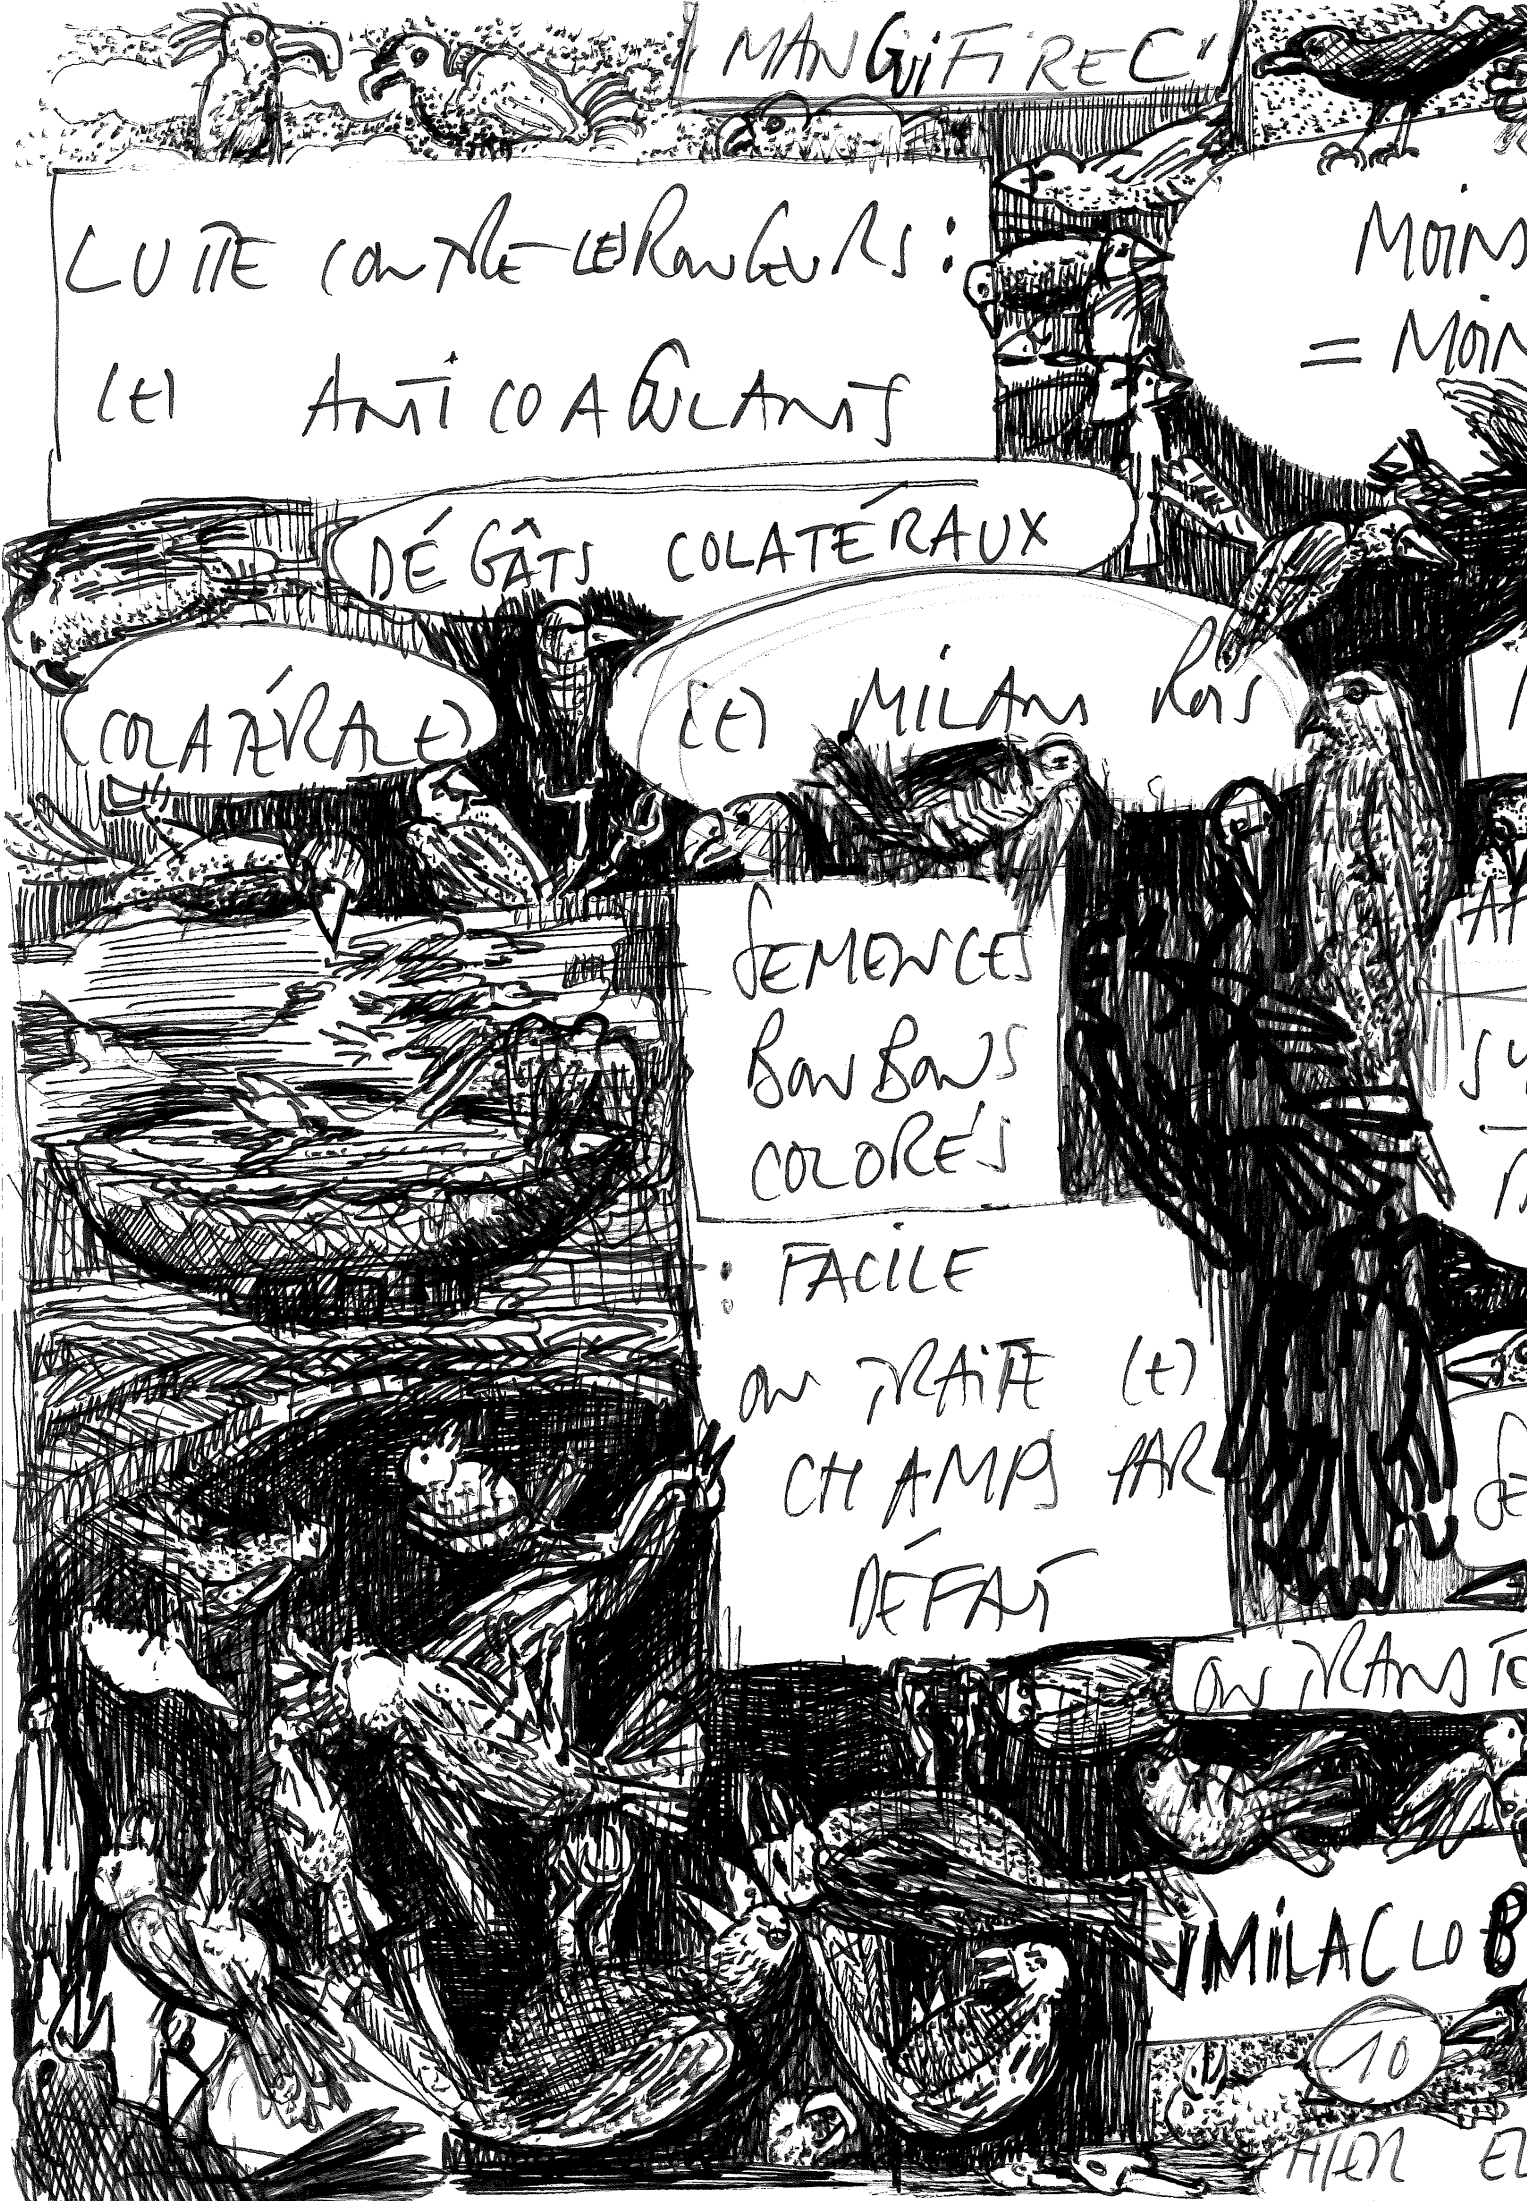 MANGUIFIREC
LUTTE CONTRE LES RONGEURS :
LES ANTICOAGULANTS
MOINS
= MOIN
DÉGÂTS COLATÉRAUX
COLATÉRALES
LES MILANS ROIS
SEMENCES
BONBONS
COLORÉS
: FACILE
ON TRAITE LES
CHAMPS PAR
DÉFAUT
ON TRANSFO
MILACLOB
10
HIER